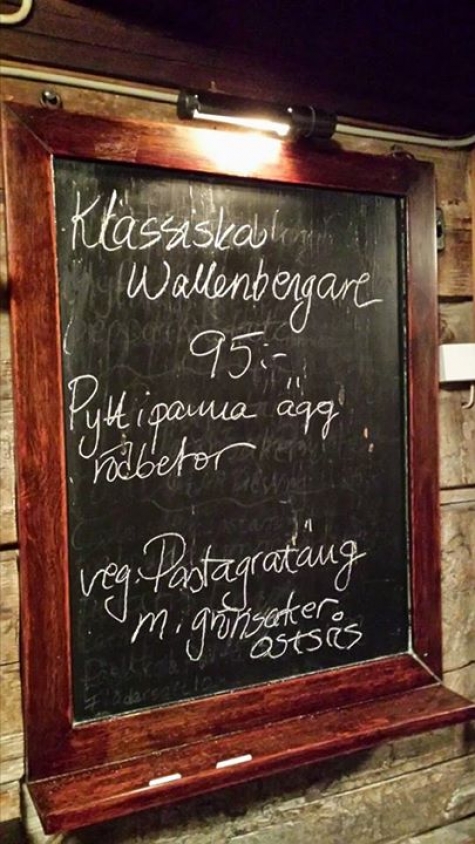 Klassiska
Wallenbergare
95:-
Pytt i panna ägg
rödbetor
veg. Pastagratäng
m. grönsaker
ostsås